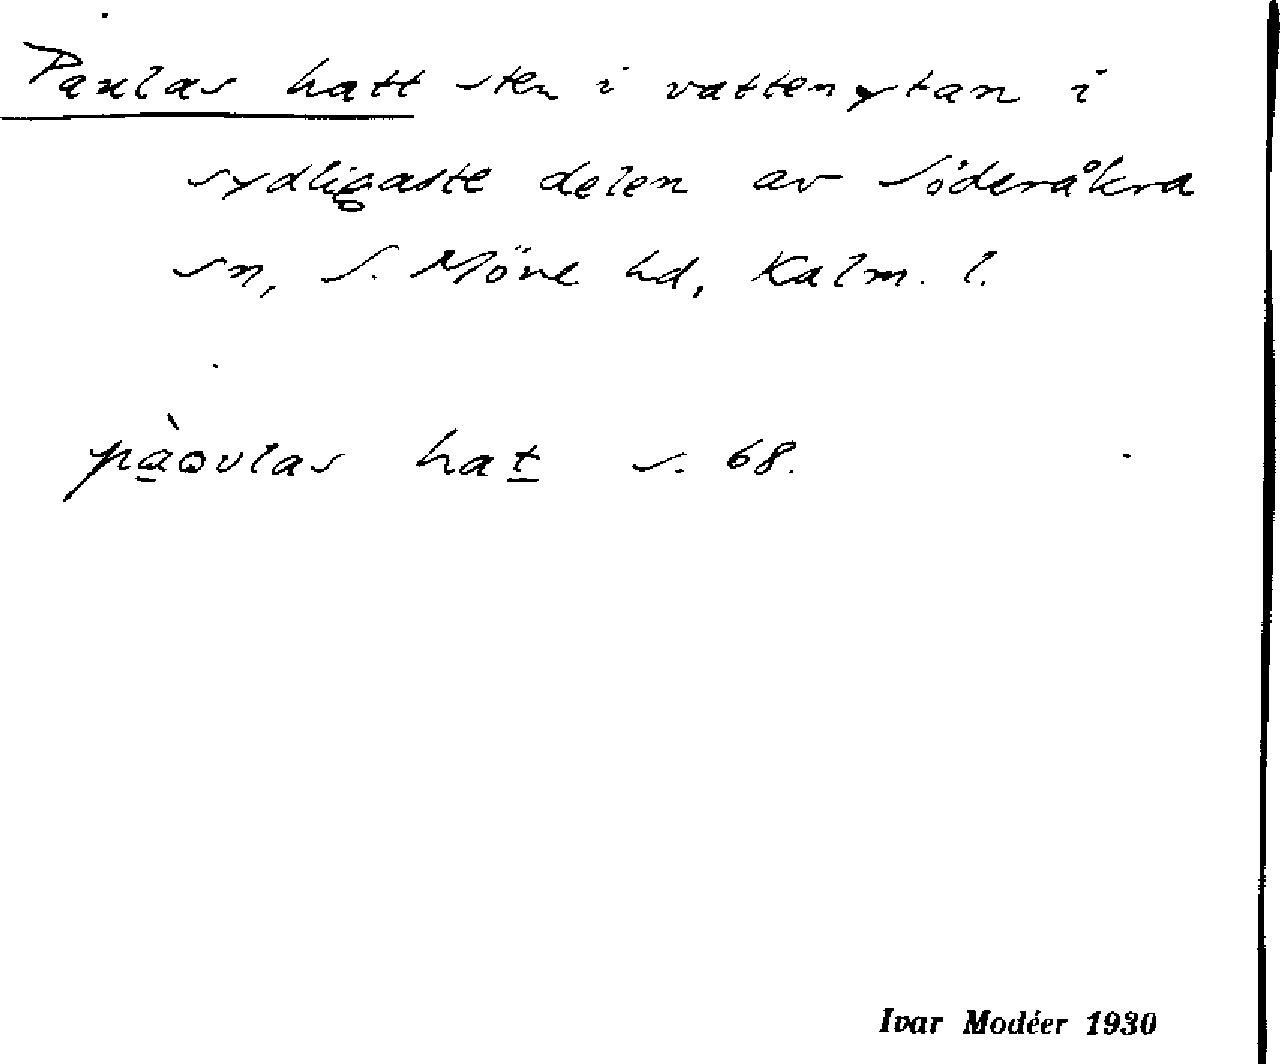 Paulas hatt sten i vattenytan i
sydligaste delen av Söderåkra
sn, S. Möre hd, Kalm. l.
pàovlas hat s. 68.
Ivar Modéer 1930